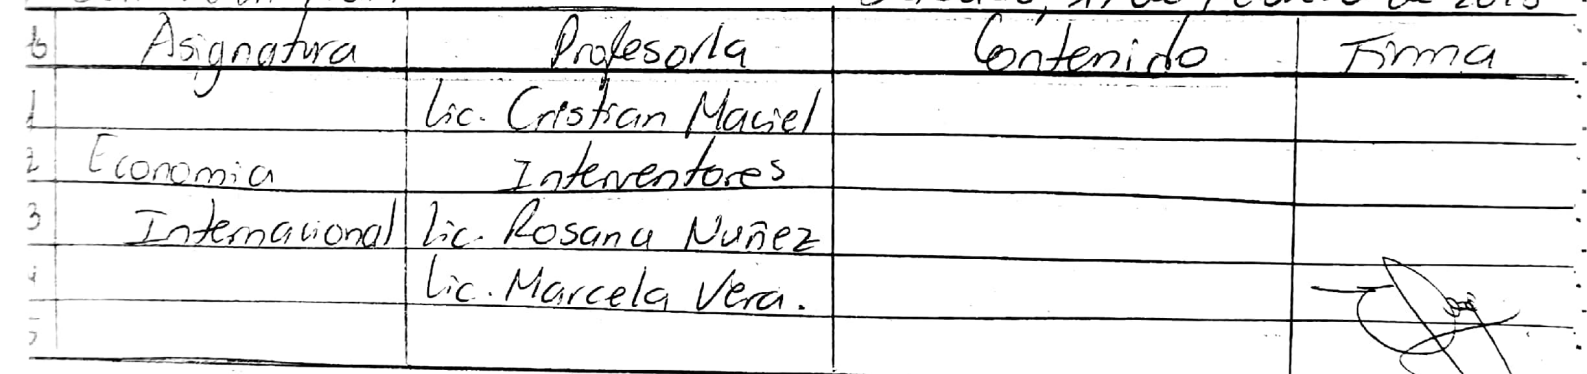 Asignatura Profesor/a Contenido Firma
1 Lic. Cristian Maciel
2 Economia Interventores
3 Internacional Lic. Rosana Nuñez
4 Lic. Marcela Vera.
5